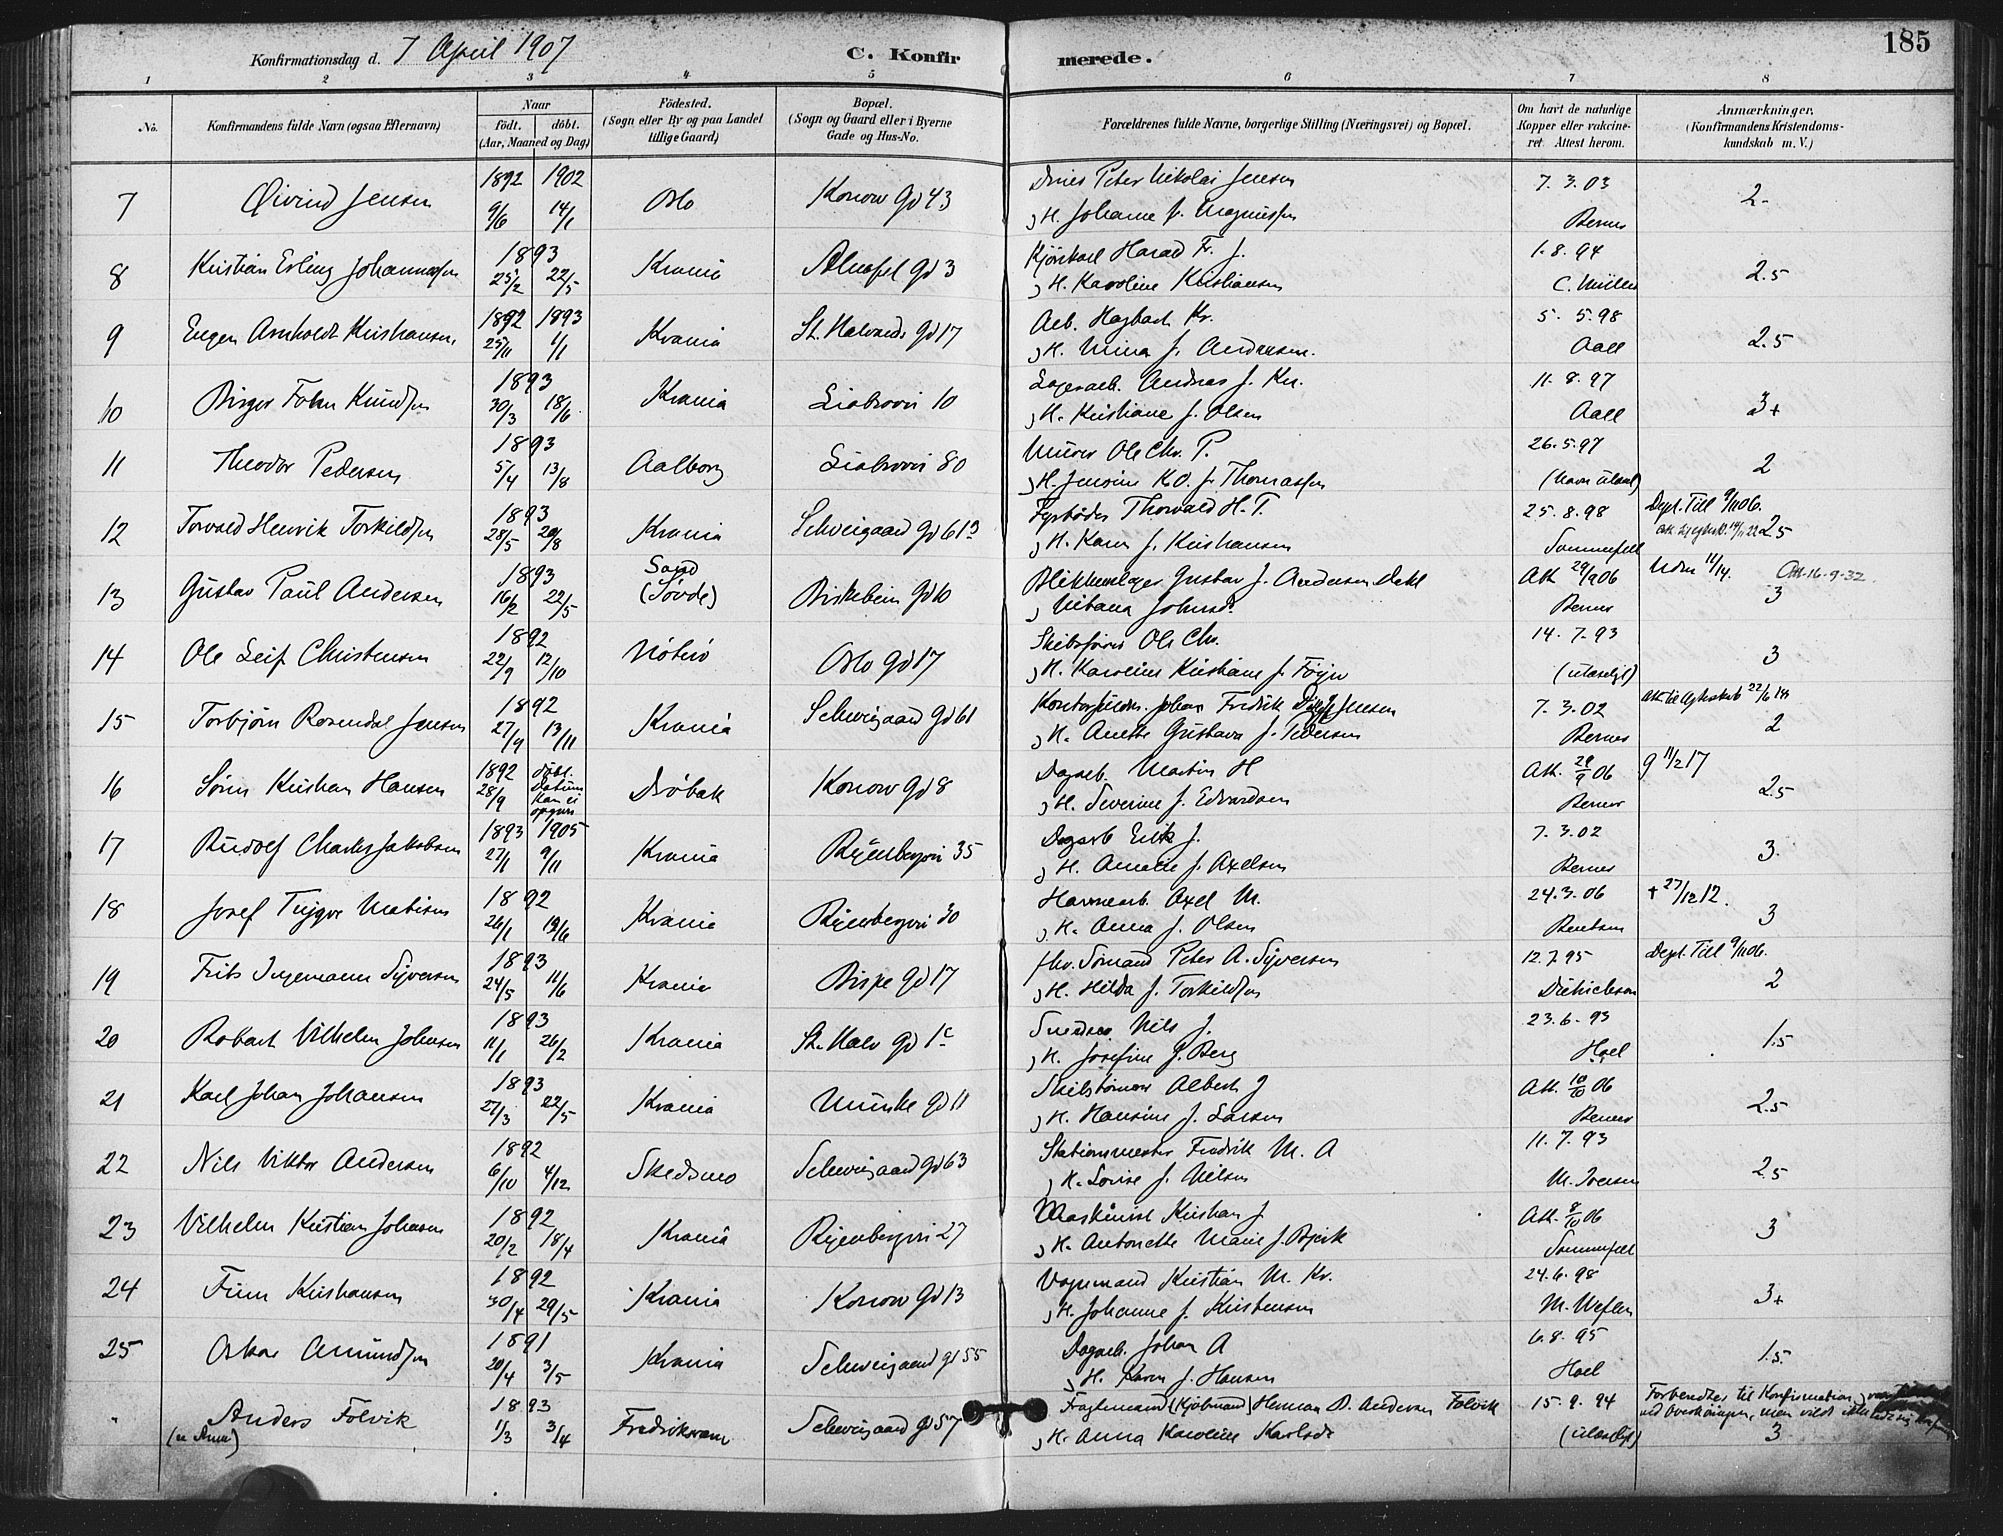 185
Konfirmationsdag d. 7 April 1907 C. Konfirmerede.
1 2 3 4 5 6 7 8
No. Konfirmandens fulde Navn (ogsaa Efternavn) Naar födt. döbt. (Aar, Maaned og Dag) Födested. (Sogn eller By og paa Landet tillige Gaard) Bopæl. (Sogn og Gaard eller i Byerne Gade og Hus-No. Forældrenes fulde Navne, borgerlige Stilling (Næringsvei) og Bopæl. Om havt de naturlige Kopper eller vakcineret Attest herom. Anmærkninger, (Konfirmandens Kristendomskundskab m. V.)
1892 1902 Peter Nikolai Jensen 7.3.03
7 Öivind Jensen 9/6 14/1 Oslo Konow Gd 43 H. Johanne f. Magnussen Berner 2-
1893 Harald Fr. J. 1.8.94
8 Kristian Erling Johannessen 25/2 22/5 Krania Gd 3 H. Karoline Kristiansen C. Müller 2.5
1892 1893 Arb. Hagbart Kr. 5.5.98
9 Eugen Arnholdt Kristiansen 25/11 1/1 Krania St. Halvards Gd 17 H. Mina f. Andersen. Aall 2.5
1893 Lagerarb. Andreas J. Kn. 11.8.97
10 Birger Knudsen 30/3 18/6 Krania Liabrovn 10 H. Kristiane f. Olsen Aall 3+
1893 Murer Ole Chr. P. 26.5.97
11 Theodor Pedersen 5/4 13/8 Aalborg Liabrovn 80 H. K.O. f. Thomassen (Navn ulæsl) 2
1893 Fyrböder Thorvald H.T. 25.8.98 Dept. Till 9/11 06.
12 Torvald Henrik Torkildsen 28/5 20/8 Krania Schweigaard Gd 61 H. Karen f. Kristiansen Sommerfelt 2.5
1893 Sand Blikkenslager Gustav J. Andersen Dahl Att 29/9 06 Att. 16-9-32
13 Gustav Paul Andersen 16/2 22/5 Birkebein Gd 10 Berner 3
1892 Skibsförer Ole Chr. 14.7.93
14 Ole Leif Christensen 22/9 12/10 Nöterö Oslo Gd 17 H. Karoline Kristiane f. Föyn (ulæseligt) 3
1892 Johan Fredrik Jensen 7.3.02 Att til Ægteskab 22/6 18
15 Torbjörn Rosendal Jensen 27/9 13/11 Krania Schweigaard Gd 61 H. Anette Gustava f. Pedersen Berner 2
1892 döbt. Datum kan ei opgives Dagarb. Martin H Att. 29/9 06 g 11/2 17
16 Sörin Kristian Hansen 28/9 Dröbak Konow Gd 8 H. Severine f. Edvardsen Berner 2.5
1893 1905 Dagarb Erik J. 7.3.02
17 Rudolf Charles Jakobsen 27/1 9/11 Krania Ryenbergvn 35 H. Amalie f. Axelsen Berner 3.
1892 Axel M. 24.3.06 † 27/12 12.
18 Josef Trygve Matisen 26/1 19/6 Krania Ryenbergvn 30 H. Anna f. Olsen Bentsen 3
1893 fhv. Sömand Peter A. Syversen 12.7.95 Dept. Till 9/11 06.
19 Frits Ingemann Syversen 24/5 11/6 Krania Bispe Gd 17 H. Hilda f. Torkildsen Diétrichson 2
1893 Nils J. 23.6.93
20 Robert Vilhelm Johansen 11/1 26/2 Krania St. Halv Gd 1c H. Josefine f. Berg Hoel 1.5
1893 Albert J Att. 10/10 06
21 Karl Johan Johansen 27/3 22/5 Krania Munke Gd 11 H. Hansine f. Larsen Berner 2.5
1892 Stationsmester Fredrik M. A 11.7.93
22 Nils Viktor Andersen 6/10 4/12 Skedsmo Schweigaard Gd 63 H. Lovise f. Nilsen M. Iversen 2.5
1892 Maskinist Kristian J Att. 8/10 06
23 Vilhelm Kristian Johansen 20/2 18/4 Krania Ryenbergvn 27 H. Antonette Marie f. Bjerk Sommerfelt 3
1892 Vognmand Kristian M. Kr. 24.6.98
24 Finn Kristiansen 30/4 29/5 Krania Konow Gd 13 H. Johanne f. Kristensen M. Weflen 3+
1891 Dagarb. Johan A 6.8.95
25 Oskar Amundsen 20/4 3/5 Krania Schweigaard Gd 55 H. Karen f. Hansen Hoel 1.5.
1893 Fragtemand (Kjöbmand) Herman B. Andersen Folvik 15.9.94 Forberedtes til Konfirmation,
" Anders Folvik 1/3 3/4 Fredriksværn Schweigaard Gd 57 H. Anna Karoline Karlsdr (ulæseligt) 3